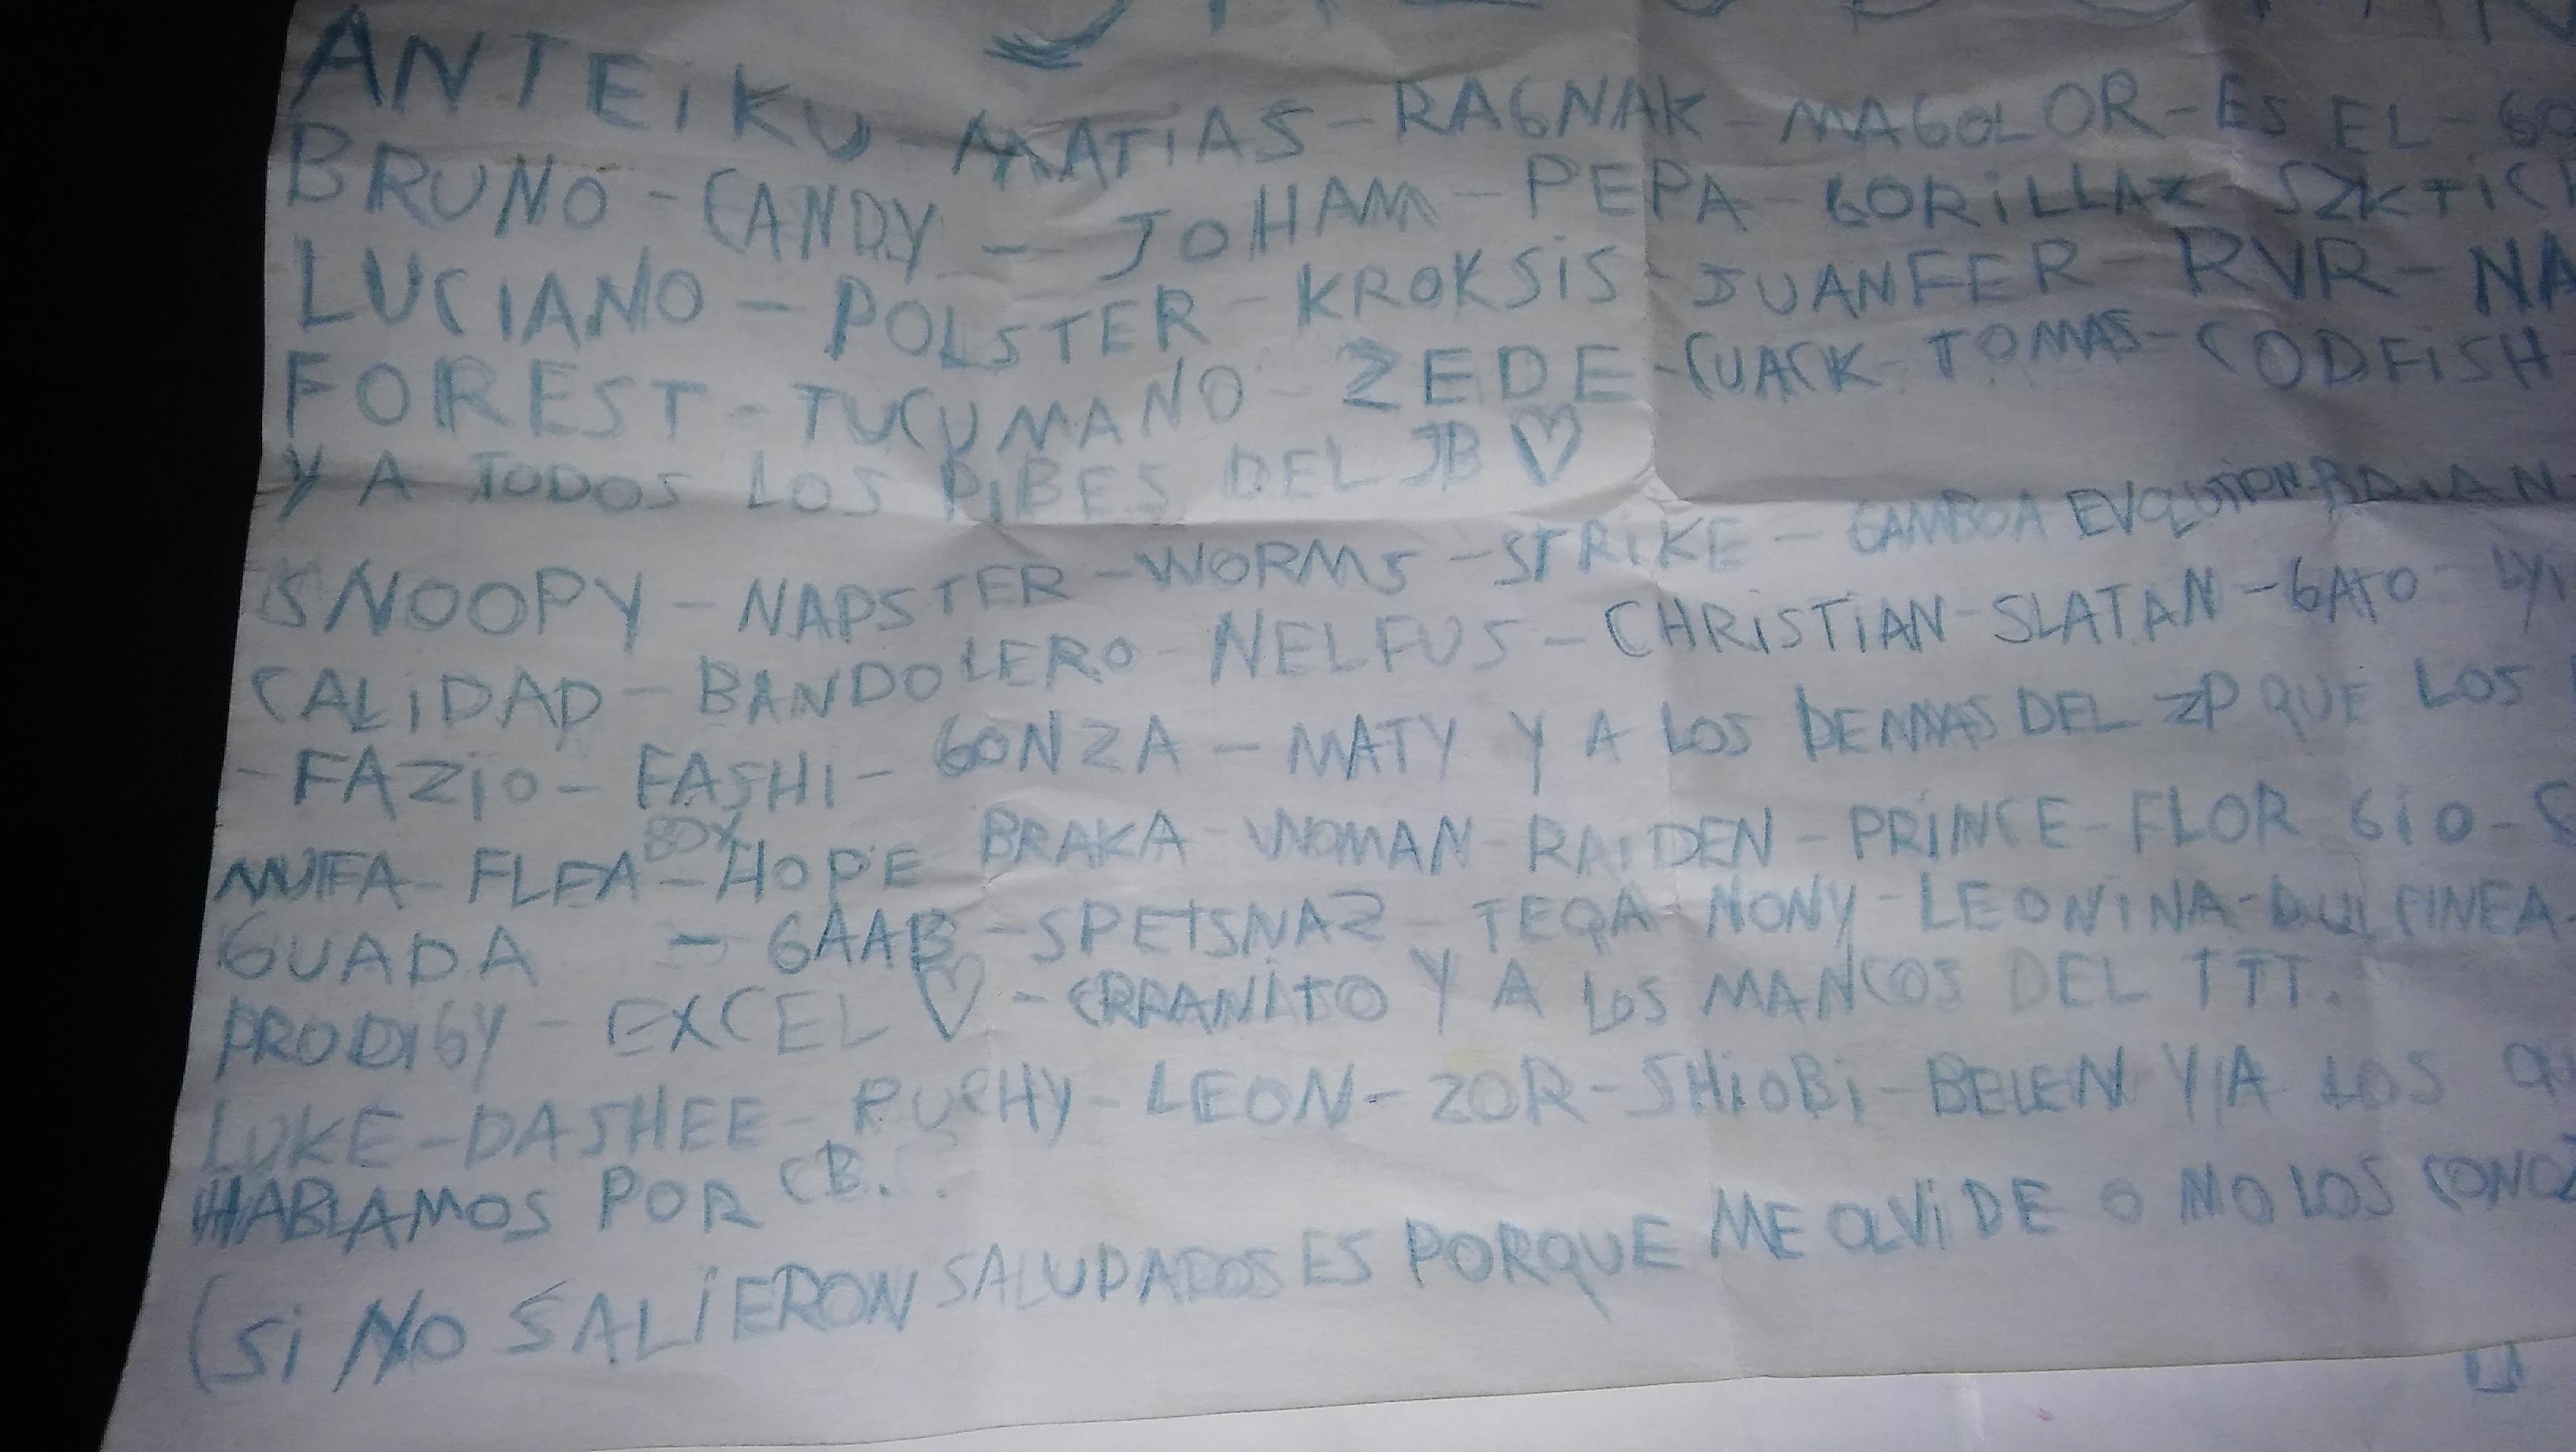 ANTEIKU - MATIAS - RAGNAK - MAGOLOR - ES EL -
BRUNO - CANDY - JOHAM - PEPA - GORILLAZ - SZKTIC
LUCIANO - POLSTER - KROKSIS - JUANFER - RVR - NA
FOREST - TUCUMANO - ZEDE - CUACK - TOMAS - CODFISH -
Y A TODOS LOS PIBES DEL JB ♡
SNOOPY - NAPSTER - WORMS - STRIKE - GAMBOA EVOLUTION - BRIAN
CALIDAD - BANDOLERO - NELFUS - CHRISTIAN - SLATAN - GATO -
- FAZIO - FASHI - GONZA - MATY Y A LOS DEMAS DEL ZP QUE LOS
FLEA BOX - HOPE BRAKA - WOMAN - RAIDEN - PRINCE - FLOR GIO -
GUADA - GAAB - SPETSNAZ - TEQA - NONY - LEONINA - DULCINEA
PRODIGY - EXCEL ♡ - Y A LOS MANCOS DEL TTT.
LUKE - DASHEE - PUCHY - LEON - ZOR - SHIOBI - BELEN Y A LOS
HABLAMOS POR CB.
(SI NO SALIERON SALUDADOS ES PORQUE ME OLVIDE O NO LOS